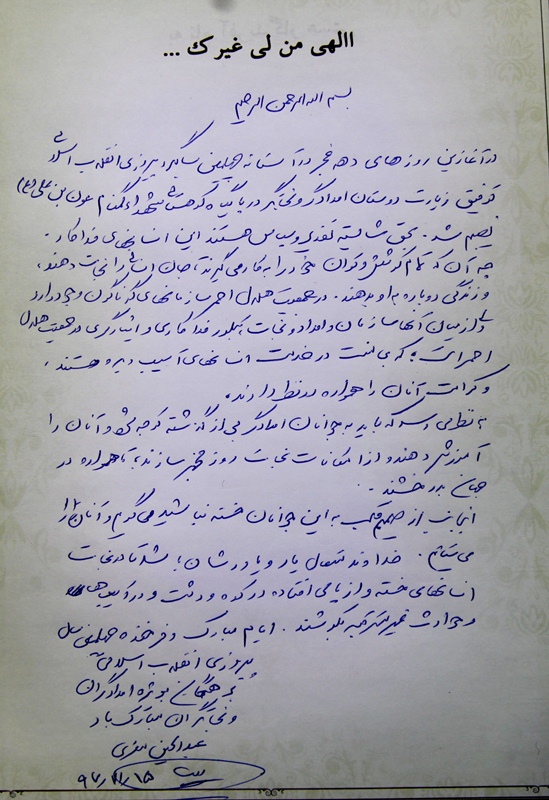 الهی من لی غیرک ...
بسم الله الرحمن الرحیم
در آغازین روزهای دهه فجر در آستانه چهلمین سالگرد پیروزی انقلاب اسلامی
توفیق زیارت دوستان امدادگر و نجاتگر در پایگاه کوهستانی شهدای گمنام عون بن علی (ع)
نصیبم شد. بحق شایسته تقدیر و سپاس هستند این انسانهای فداکار.
چه آن که تمام کوشش و توان خود را به کار می گیرند تا جان انسانی را نجات دهند،
و زندگی دوباره به او بدهند. در جمعیت هلال احمر سازمانهای گوناگون وجود دارد
ولی از میان آنها سازمان امداد و نجات، تبلور فداکاری و ایثارگری در جمعیت هلال
احمر است؛ که بی منت در خدمت انسانهای آسیب دیده هستند.
و کرامت آنان را همواره مد نظر دارند.
به نظر می رسد که باید به جوانان امدادگر بیش از گذشته توجه شود و آنان را
آموزش دهند و از امکانات نجات روز مجهز سازند، تا همواره در
جهان بدرخشند.
اینجانب از صمیم قلب به این جوانان خسته نباشید می گویم و آنان را
می ستایم. خداوند متعال یار و یاورشان باشد تا در نجات
انسانهای خسته و از پا می افتاده در کوه و دشت و در آسیب ها
و حوادث غیر مترقبه بکوشند. ایام مبارک و فرخنده چهلمین سال
پیروزی انقلاب اسلامی
بر همگان بویژه امدادگران
و نجاتگران مبارک باد
عبدالحسین
۹۷/۱۱/۱۵